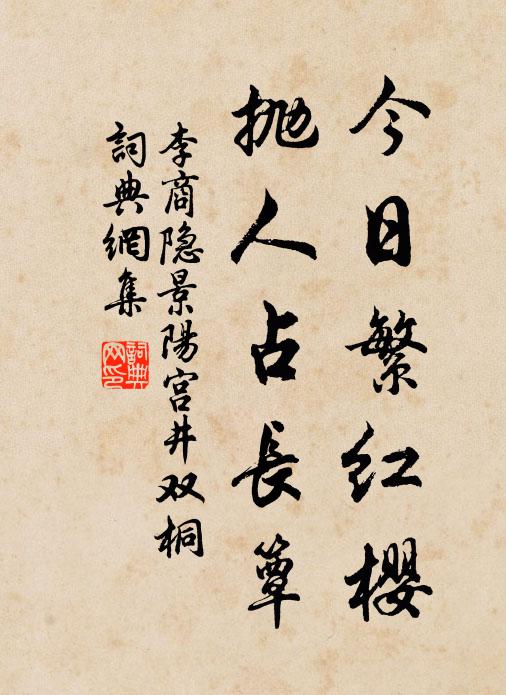 今日繁红樱
抛人占長簟
李商隐景陽宫井双桐
詞典網集
詞典网印